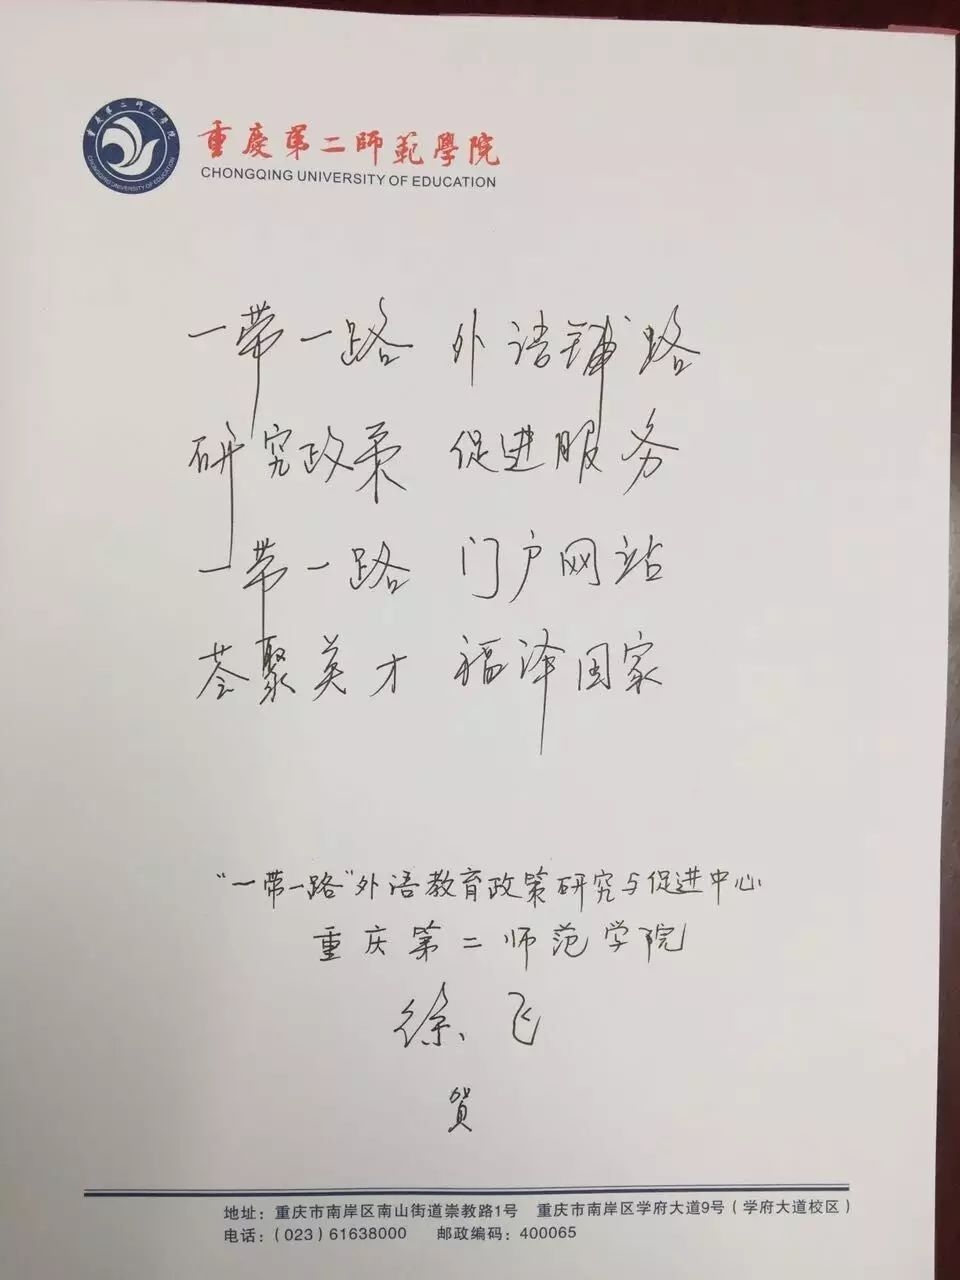 重慶第二師範學院
CHONGQING UNIVERSITY OF EDUCATION
一带一路 外语铺路
研究政策 促进服务
一带一路 门户网站
荟聚英才 福泽国家
“一带一路”外语教育政策研究与促进中心
重庆第二师范学院
徐飞
賀
地址：重庆市南岸区南山街道崇教路1号 重庆市南岸区学府大道9号（学府大道校区）
电话：（023）61638000 邮政编码：400065